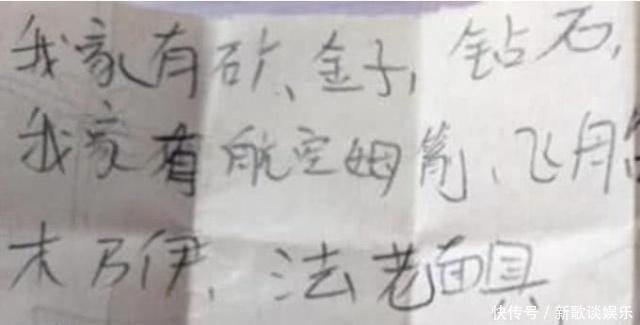 我家有矿、金子,钻石,
我家有航空姆舰、飞船
木乃伊、法老面具
快传号/新歌谈娱乐